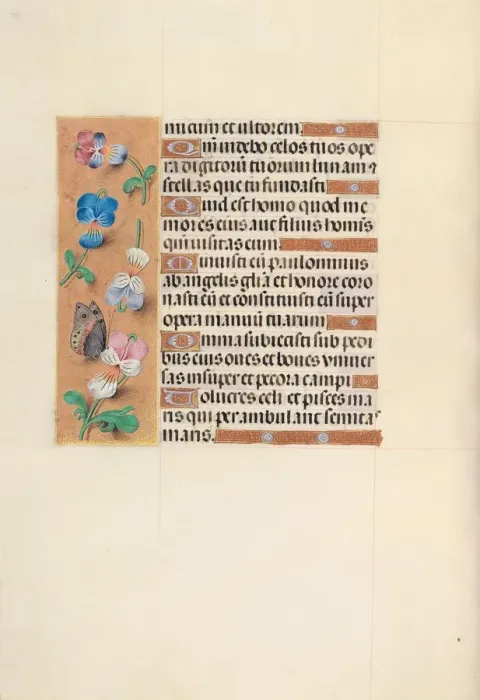 micum et ultorem
Qm̄ uidebo celos tuos ope
ra digitorū tuorum lunam ⁊
stellas que tu fundasti
Quid est homo quod me
mores eius aut filius homīs
qm̄ uisitas eum
Minuisti eū paulominus
ab angelis glīa et honore coro
nasti eū et constituisti eū super
opera manuū tuarum
Omnia subiecisti sub pedi
bus eius oues et boues vniuer
sas insuper et pecora campi
Uolucres celi et pisces ma
ris qui perambulant semitas
maris.